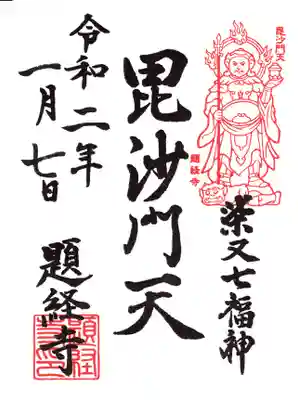 毘沙門天
題経寺
柴又七福神
毘沙門天
令和二年
一月七日
題経寺